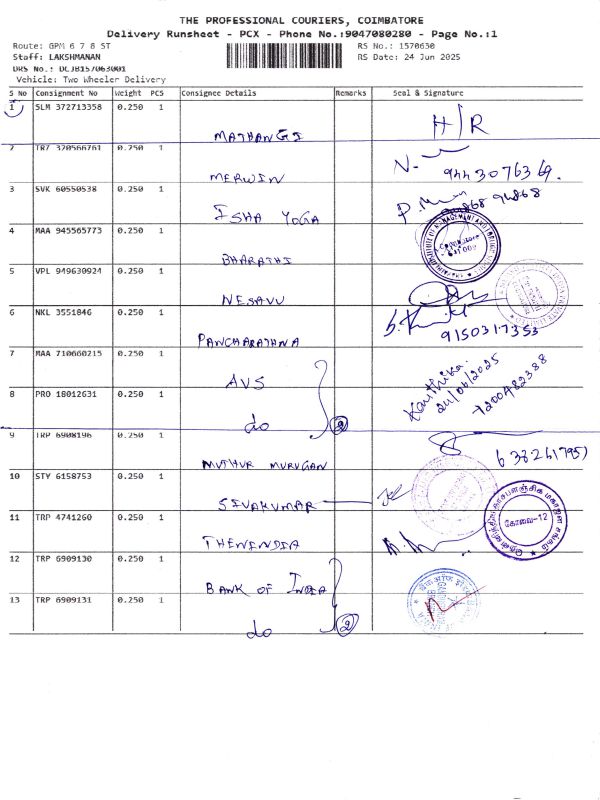 THE PROFESSIONAL COURIERS, COIMBATORE
Delivery Runsheet - PCX - Phone No.:9047080280 - Page No.:1
Route: GPM 6 7 8 ST
RS No.: 1570630
Staff: LAKSHMANAN
RS Date: 24 Jun 2025
DRS No.: DCJB157063001
Vehicle: Two Wheeler Delivery
S No Consignment No Weight PCS Consignee Details Remarks Seal & Signature
1 SLM 372713358 0.250 1
MATHANGI H/R
2 TRZ 320566761 0.250 1
MERWIN 9443076369.
3 SVK 60550538 0.250 1
ISHA YOGA 94868
4 MAA 945565773 0.250 1
BHARATHI
5 VPL 949630924 0.250 1
NESAVU
6 NKL 3551846 0.250 1
PANCHARATHNA 9150317353
7 MAA 710660215 0.250 1
AVS Karthika. 24/06/2025 7200482388
8 PRO 18012631 0.250 1
do 2
9 TRP 6908196 0.250 1
MUTHUR MURUGAN
10 STY 6158753 0.250 1
SIVAKUMAR
11 TRP 4741260 0.250 1
THENINDIA
கோவை-12
12 TRP 6909130 0.250 1
BANK OF INDIA
13 TRP 6909131 0.250 1
do 2